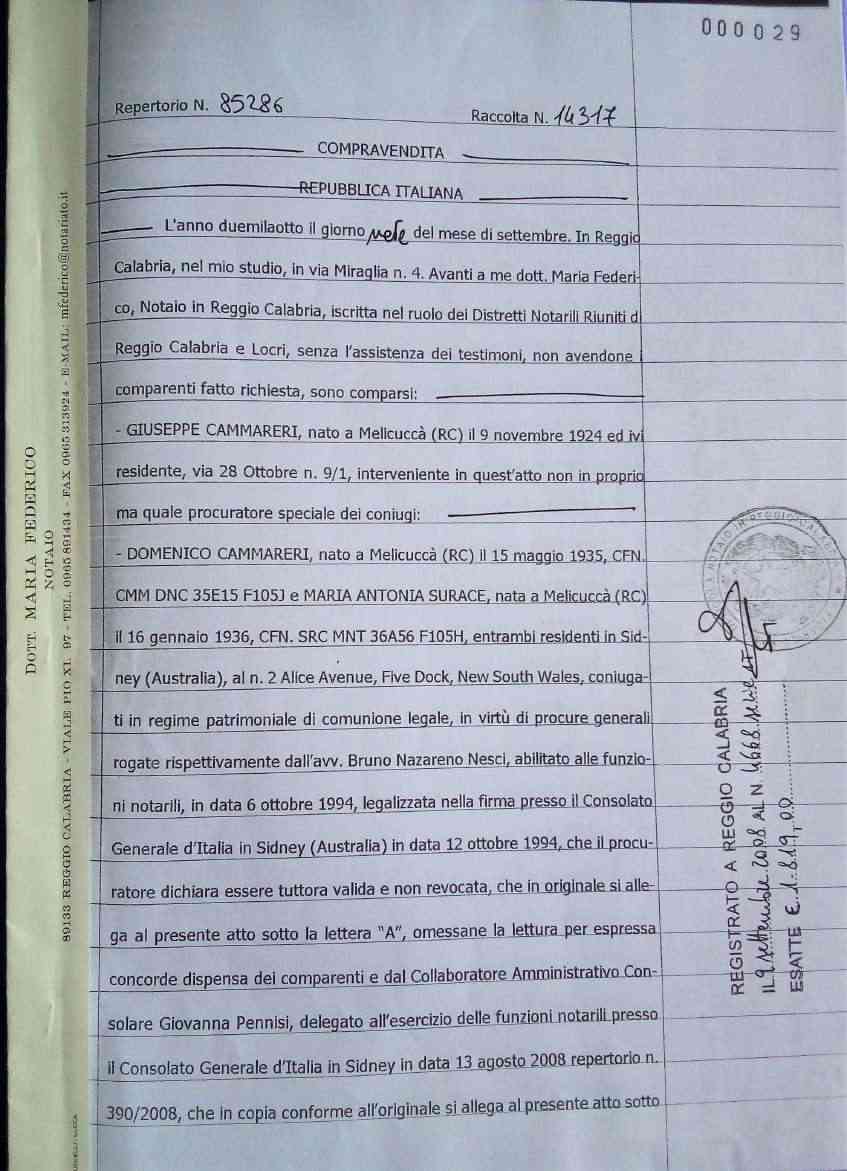 000029
Repertorio N. 85286
Raccolta N. 14317
COMPRAVENDITA
REPUBBLICA ITALIANA
L'anno duemilaotto il giorno del mese di settembre. In Reggio
Calabria, nel mio studio, in via Miraglia n. 4. Avanti a me dott. Maria Federi-
co, Notaio in Reggio Calabria, iscritta nel ruolo dei Distretti Notarili Riuniti d
Reggio Calabria e Locri, senza l'assistenza dei testimoni, non avendone i
comparenti fatto richiesta, sono comparsi:
- GIUSEPPE CAMMARERI, nato a Melicuccà (RC) il 9 novembre 1924 ed ivi
residente, via 28 Ottobre n. 9/1, interveniente in quest'atto non in proprio
ma quale procuratore speciale dei coniugi:
- DOMENICO CAMMARERI, nato a Melicuccà (RC) il 15 maggio 1935, CFN.
CMM DNC 35E15 F105J e MARIA ANTONIA SURACE, nata a Melicuccà (RC)
il 16 gennaio 1936, CFN. SRC MNT 36A56 F105H, entrambi residenti in Sid-
ney (Australia), al n. 2 Alice Avenue, Five Dock, New South Wales, coniuga-
ti in regime patrimoniale di comunione legale, in virtù di procure generali
rogate rispettivamente dall'avv. Bruno Nazareno Nesci, abilitato alle funzio-
ni notarili, in data 6 ottobre 1994, legalizzata nella firma presso il Consolato
Generale d'Italia in Sidney (Australia) in data 12 ottobre 1994, che il procu-
ratore dichiara essere tuttora valida e non revocata, che in originale si alle-
ga al presente atto sotto la lettera "A", omessane la lettura per espressa
concorde dispensa dei comparenti e dal Collaboratore Amministrativo Con-
solare Giovanna Pennisi, delegato all'esercizio delle funzioni notarili presso
il Consolato Generale d'Italia in Sidney in data 13 agosto 2008 repertorio n.
390/2008, che in copia conforme all'originale si allega al presente atto sotto
DOTT. MARIA FEDERICO
NOTAIO
89133 REGGIO CALABRIA - VIALE PIO XI, 97 - TEL. 0965 891434 - FAX 0965 313924 - E-MAIL: mfederico@notariato.it
NOTAIO IN REGGIO CALABRIA
REGISTRATO A REGGIO CALABRIA
IL 9 settembre 2008 AL N. 4668 serie 1T
ESATTE € 1.819,00